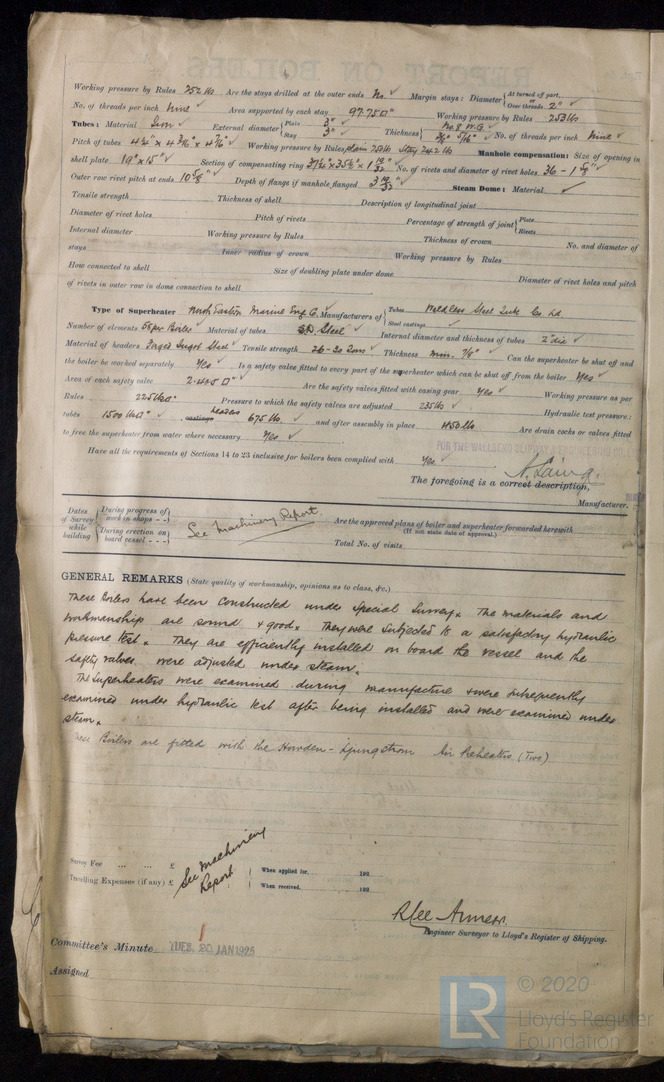 Working pressure by Rules 252 lbs Are the stays drilled at the outer ends No ✓ Margin stays: Diameter { At turned off part, or Over threads 2" ✓
No. of threads per inch Nine ✓ Area supported by each stay 97.75 □" Working pressure by Rules 253 lbs
Tubes: Material Iron ✓ External diameter { Plain 3" ✓ Stay 3" ✓ Thickness { No 8 W.G. ✓ 5/16" ✓ No. of threads per inch Nine ✓
Pitch of tubes Working pressure by Rules Plain Stay 242 lbs Manhole compensation: Size of opening in
shell plate 19" x 15" ✓ Section of compensating ring No. of rivets and diameter of rivet holes 36 - 1 5/8" ✓
Outer row rivet pitch at ends 10 5/8" ✓ Depth of flange if manhole flanged Steam Dome: Material ✓
Tensile strength Thickness of shell Description of longitudinal joint
Diameter of rivet holes Pitch of rivets Percentage of strength of joint { Plate Rivets
Internal diameter Working pressure by Rules Thickness of crown No. and diameter of
stays Inner radius of crown Working pressure by Rules
How connected to shell Size of doubling plate under dome Diameter of rivet holes and pitch
of rivets in outer row in dome connection to shell
Type of Superheater North Eastern Marine Eng. Co. Manufacturers of { Tubes Weldless Steel Tube Co. Ld. Steel castings ✓
Number of elements 58 per Boiler ✓ Material of tubes S.D. Steel ✓ Internal diameter and thickness of tubes 2" dia ✓
Material of headers Forged Ingot Steel ✓ Tensile strength 26-30 Tons ✓ Thickness min. 7/8" ✓ Can the superheater be shut off and
the boiler be worked separately Yes ✓ Is a safety valve fitted to every part of the superheater which can be shut off from the boiler Yes ✓
Area of each safety valve 2.405 □" ✓ Are the safety valves fitted with easing gear Yes ✓ Working pressure as per
Rules 225 lbs □" Pressure to which the safety valves are adjusted 235 lbs ✓ Hydraulic test pressure:
tubes 1500 lbs □" ✓ castings headers 675 lbs ✓ and after assembly in place 450 lbs Are drain cocks or valves fitted
to free the superheater from water where necessary Yes ✓
FOR THE WALLSEND SLIPWAY & ENGINEERING CO. L
Have all the requirements of Sections 14 to 23 inclusive for boilers been complied with Yes ✓
A. Laing.
The foregoing is a correct description,
Manufacturer.
Dates of Survey while building { During progress of work in shops - - During erection on board vessel - - - See Machinery Report. Are the approved plans of boiler and superheater forwarded herewith (If not state date of approval.)
Total No. of visits
GENERAL REMARKS (State quality of workmanship, opinions as to class, &c.)
These Boilers have been constructed under Special Survey. The materials and
workmanship are sound & good. They were subjected to a satisfactory hydraulic
pressure test. They are efficiently installed on board the vessel and the
safety valves were adjusted under steam.
The Superheaters were examined during manufacture & were subsequently
examined under hydraulic test after being installed and were examined under
steam.
These Boilers are fitted with the Howden-Ljungstrom Air Preheaters (Two)
Survey Fee ... ... £ See Machinery Report. When applied for, 192
Travelling Expenses (if any) £ When received, 192
Engineer Surveyor to Lloyd's Register of Shipping.
Committee's Minute TUES. 20 JAN 1925
Assigned
LR © 2020
Lloyd's Register
Foundation